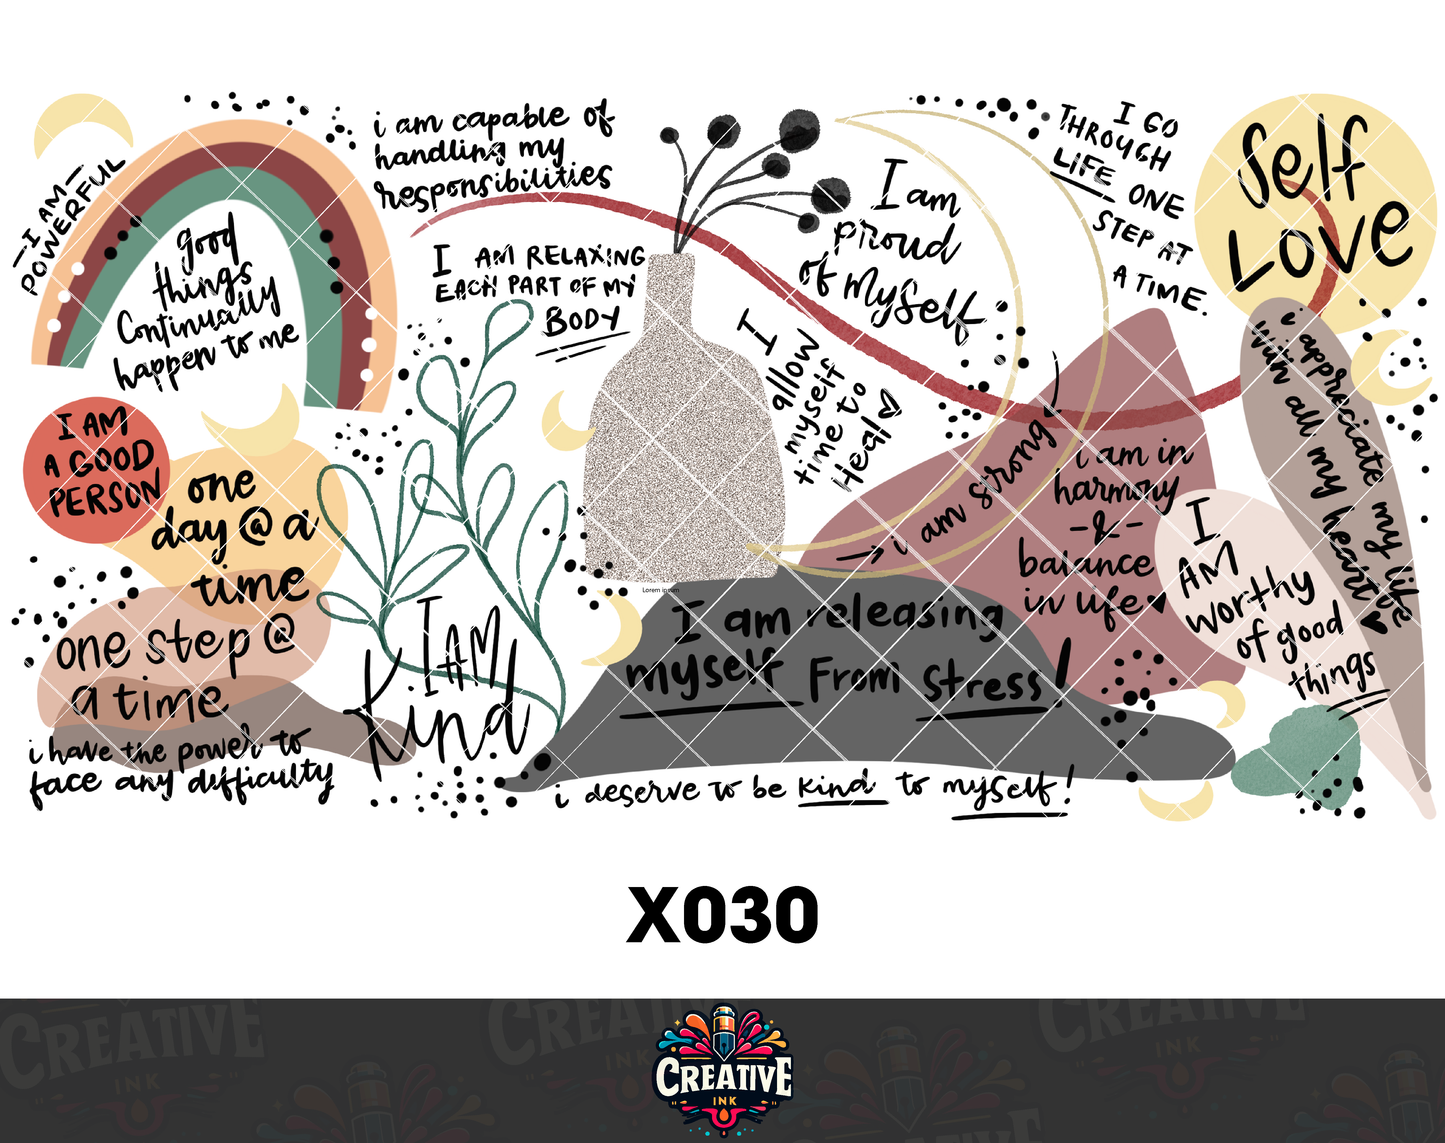 —I AM—
POWERFUL
good
things
Continually
happen to me
i am capable of
handling my
responsibilities
I AM RELAXING
EACH PART OF MY
BODY
I am
proud
of Myself
I GO
THROUGH
LIFE ONE
STEP AT
A TIME.
Self
LOVE
I
allow
myself
time to
Heal
I AM
A GOOD
PERSON
one
day @ a
time
one step @
a time
i have the power to
face any difficulty
I AM
Kind
i am strong
i am in
harmony
-&-
balance
in life
i appreciate my life
with all my heart
I
AM
worthy
of good
things
Lorem ipsum
I am releasing
myself From stress!
i deserve to be kind to myself!
X030
CREATIVE
INK
CREATIVE
INK
CREATIVE
INK
CREATIVE
INK